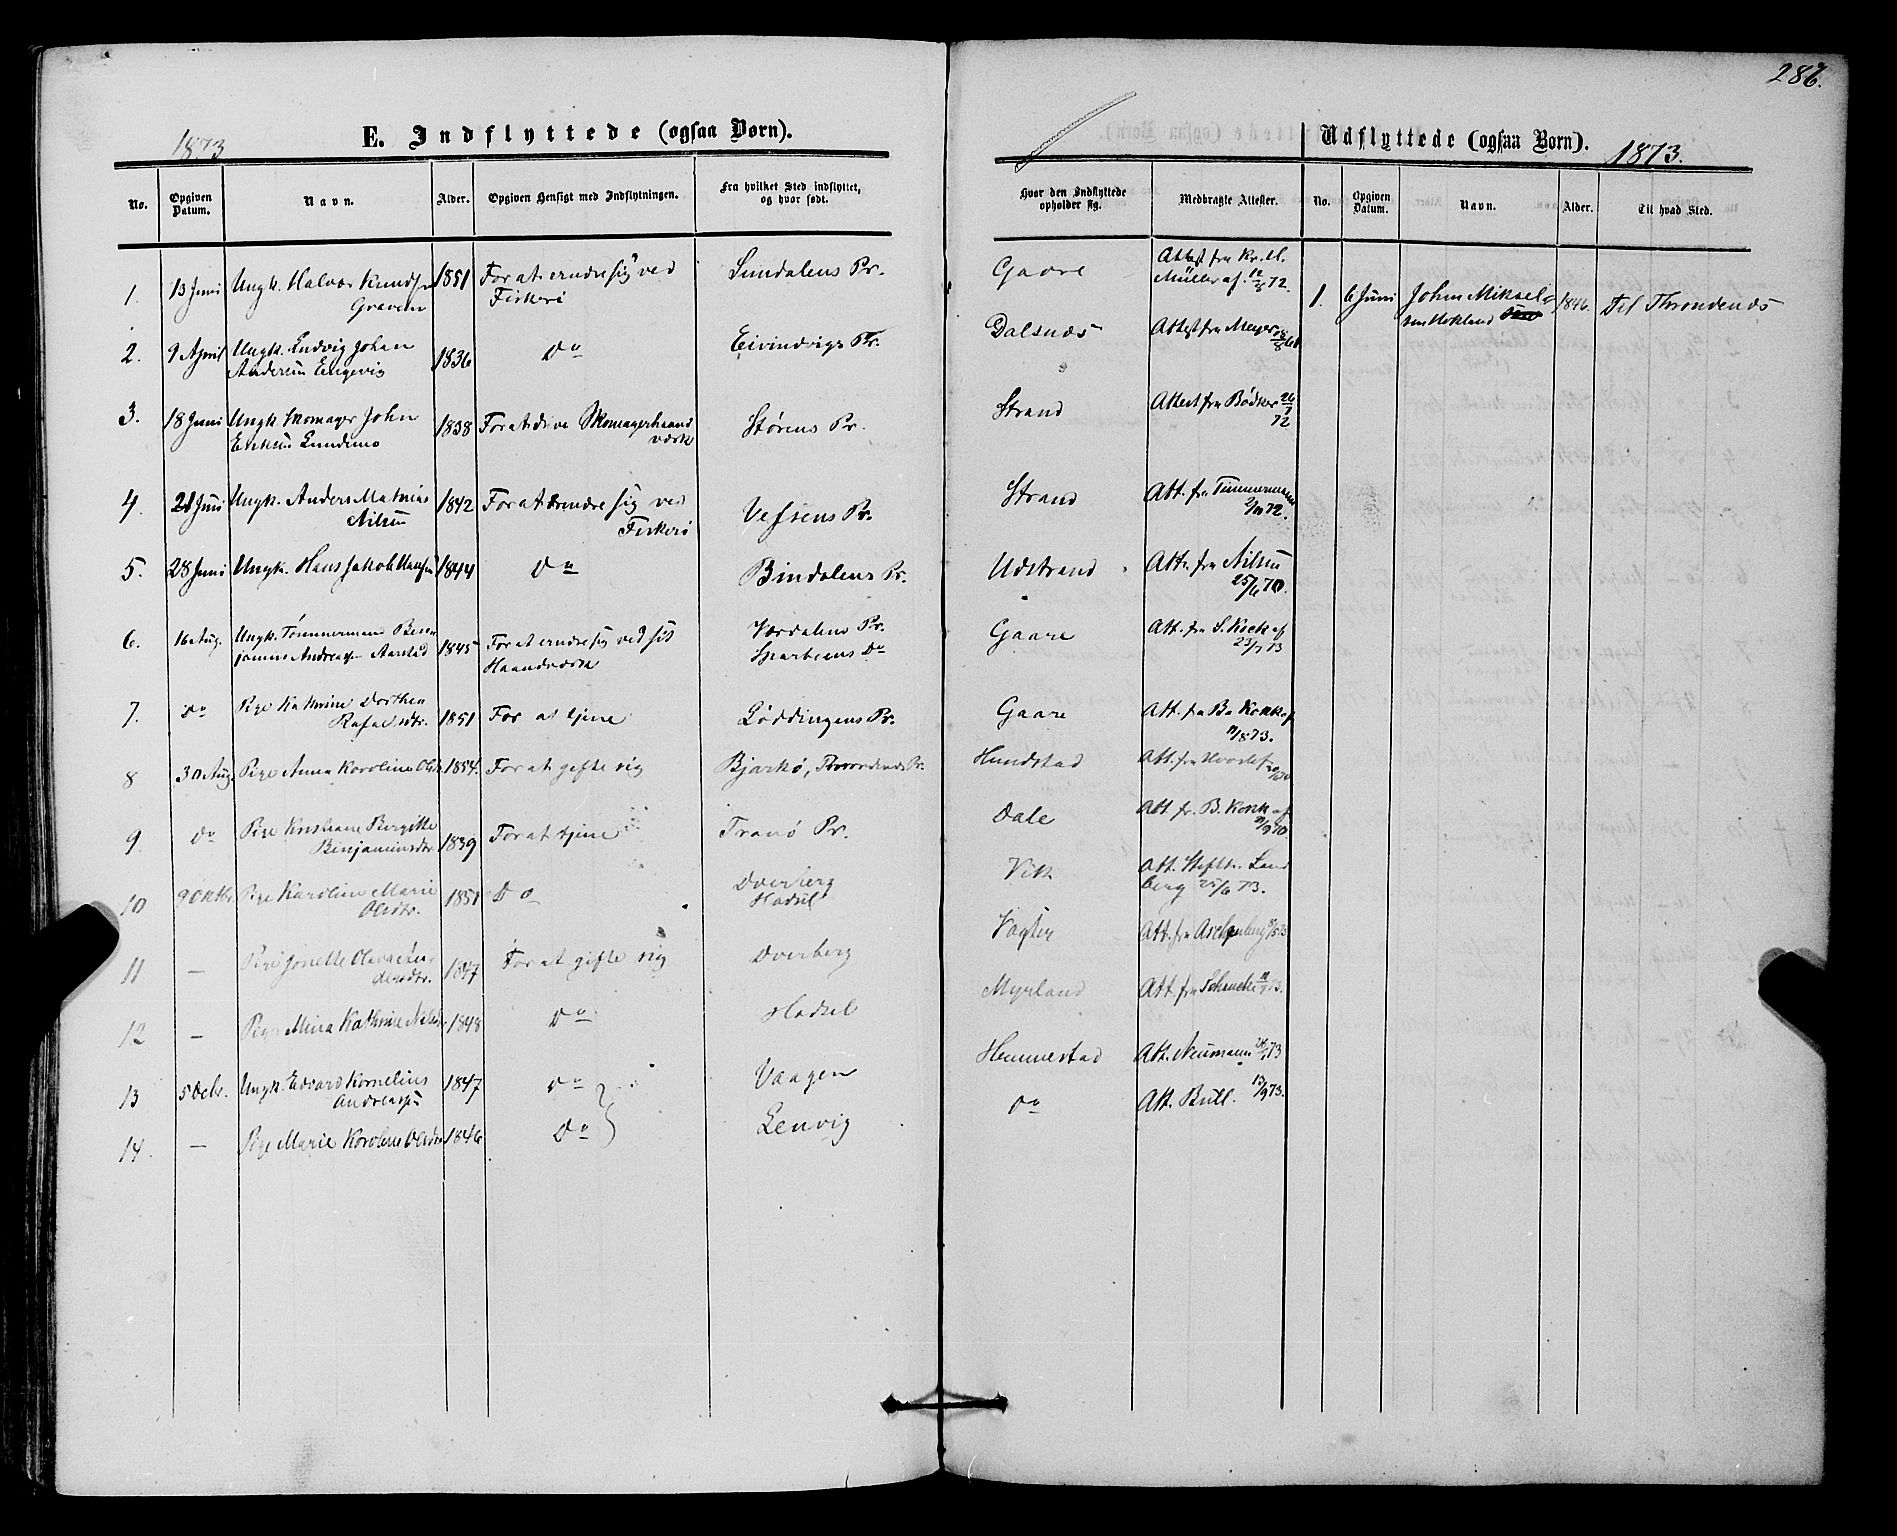 286.
1873
E. Indflyttede (ogsaa Børn).
Udflyttede (ogsaa Børn). 1873.
No. Opgiven Datum. Navn. Alder. Opgiven Hensigt med Indflytningen. Fra hvilket Sted indflyttet, og hvor født. Hvor den Indflyttede opholder sig. Medbragte Attester.
No. Opgiven Datum. Navn. Alder. Til hvad Sted.
1. 13 Juni Ungk. Halvor Knudsen 1851 For at ernære sig ved Sundalens Pr. Gaare Attest fra Kr. M.
Graven Fiskeri Müller af 12/8 72.
2. 9 April Ungk. Ludvig Johan 1836 Do Eivindvigs Pr. Dalsnæs Attest fra Meyer
Andersen Engevig
3. 18 Juni Ungk. Skomager John 1838 For at drive Skomagerhaand Størens Pr. Strand Attest fra Bødker
Eriksen Lundemo værk 72
4. 21 Juni Ungk. Anders Matias 1842 For at ernære sig ved Vefsens Pr. Strand Att. fra Timmermann
Nilsen Fiskeri 72.
5. 28 Juni Ungk. Hans Jakob Hansen 1844 Do Bindalens Pr. Udstrand Att. fra Nilsen
25/6 70.
6. 16 Aug. Ungk. Tømmermand Ben 1845 For at ernære sig ved sit Værdalens Pr. Gaare Att. fra S. Koch af
jamin Andreas Aarstad Haandværk Sparboens Do 23/7 73
7. Do Pige Kathrine Dorthea 1851 For at tjene Løddingens Pr. Gaare Att. fra B. Kokk af
Rafaelsdtr. 11/8 73.
8 30 Aug. Pige Anna Karoline Olsdr 1854. For at gifte sig Bjarkø, Throndenæs Pr. Hundstad Att. fra
9. Do Pige Kristiane Birgitte 1839 For at tjene Tranø Pr. Dale Att. fr. B. Kokk af
Benjaminsdtr. 70
10 9 Oktbr. Pige Karoline Marie 1851 Do Dverberg Vik Att. Stiftk. Land
Olsdtr. Hadsel berg 25/6 73.
11 — Pige Jonette Olava An 1847 For at gifte sig Dverberg Att. fra Aschenberg
dersdtr.
12 — Pige Mina Kathrine 1848 Do Hadsel Myrland Att. fra Schanche 73.
13 5 Octbr. Ungk. Edvard Kornelius 1847 Do Vaagen Hemmestad Att. Neumann 73
Andreassen
14. — Pige Marie Karoline Olsdtr 1846 Do Lenvig Do Att. Bull. 13/9 73.
1. 6 Juni Johan Mikael 1846. Til Throndenæs
sen Hokland